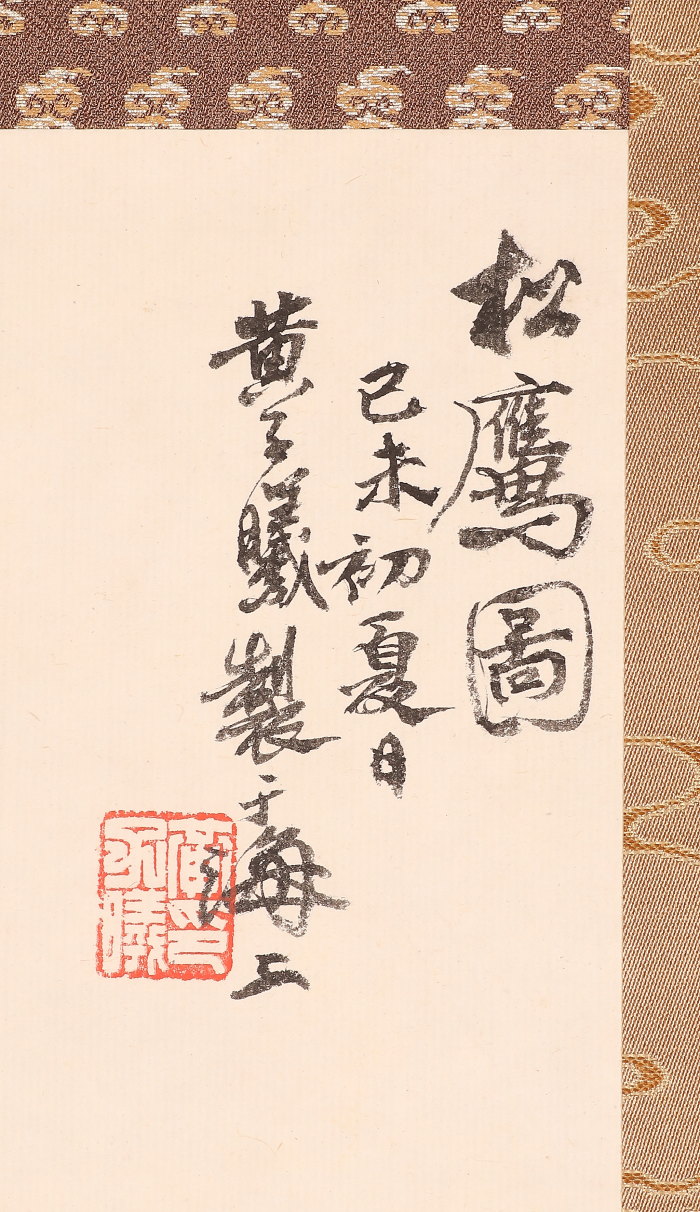 松鷹圖
己未初夏日
黃子曦製于海上